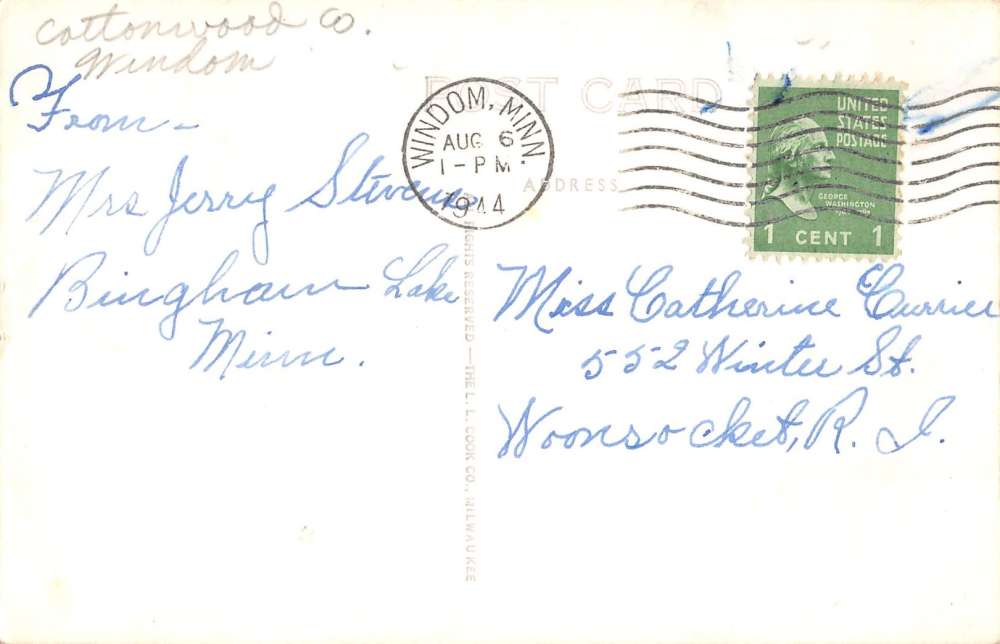 Cottonwood Co.
Windom
From -
Mrs Jerry Stevens
Bingham Lake
Minn.
POST CARD
WINDOM, MINN.
AUG 6
1 - PM
1944
ADDRESS
UNITED
STATES
POSTAGE
GEORGE
WASHINGTON
1 CENT 1
Miss Catherine Currier
552 Winter St.
Woonsocket, R. I.
RIGHTS RESERVED — THE L. L. COOK CO., MILWAUKEE